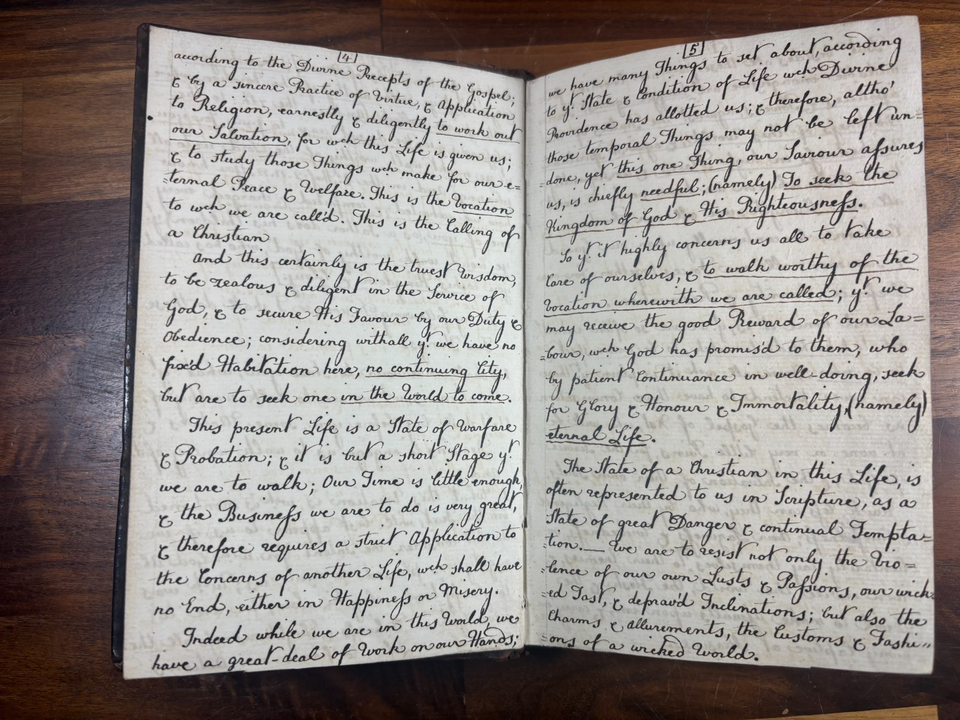 [4]
according to the Divine Precepts of the Gospel;
& by a sincere Practice of Virtue, & Application
to Religion, earnestly & diligently to work out
our Salvation, for wch this Life is given us;
& to study those Things wch make for our e=
=ternal Peace & Welfare. This is the Vocation
to wch we are call'd. This is the Calling of
a Christian
And this certainly is the truest Wisdom,
to be zealous & diligent in the Service of
God, & to secure His Favour by our Duty &
Obedience; considering withall yt we have no
fix'd Habitation here, no continuing City,
but are to seek one in the World to come.
This present Life is a State of Warfare
& Probation; & it is but a short Stage yt
we are to walk; Our Time is little enough,
& the Business we are to do is very great,
& therefore requires a strict Application to
the Concerns of another Life, wch shall have
no End, either in Happiness or Misery.
Indeed while we are in this World, we
have a great-deal of Work on our Hands;
[5]
we have many Things to set about, according
to yt State & Condition of Life wch Divine
Providence has allotted us; & therefore, altho'
those temporal Things may not be left un=
=done, yet this one Thing, our Saviour assures
us, is chiefly needful; (namely) To seek the
Kingdom of God & His Righteousness.
So yt it highly concerns us all to take
Care of ourselves, & to walk worthy of the
Vocation wherewith we are called; yt we
may receive the good Reward of our La=
=bour, wch God has promis'd to them, who
by patient Continuance in well-doing, seek
for Glory & Honour & Immortality, (namely)
eternal Life.
The State of a Christian in this Life, is
often represented to us in Scripture, as a
State of great Danger & continual Tempta=
=tion.— We are to resist not only the Vio=
=lence of our own Lusts & Passions, our wick
=ed Tast, & deprav'd Inclinations; but also the
Charms & allurements, the Customs & Fashi=
=ons of a wicked World.